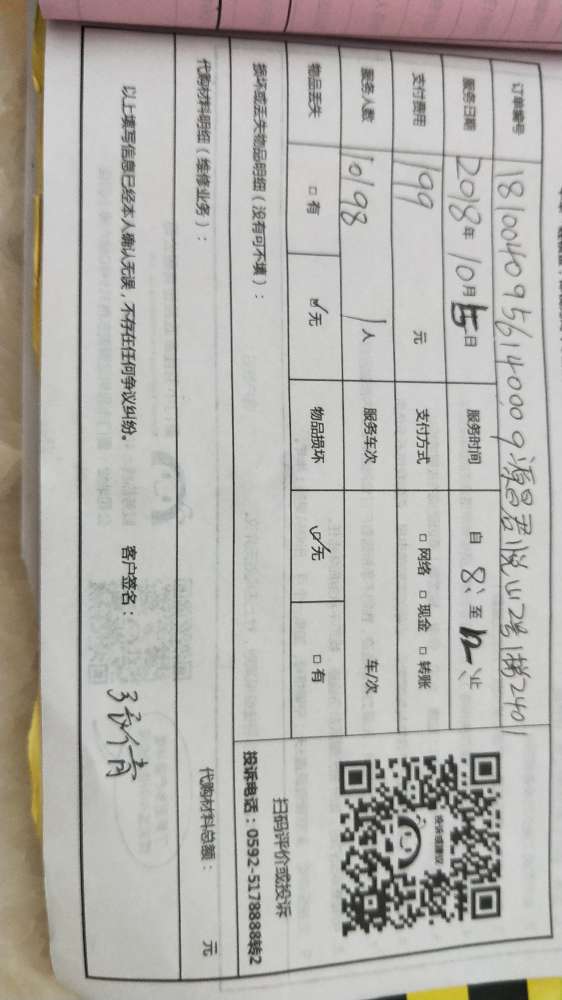 订单编号 1810040956140009源昌君悦山2号1梯2401
服务日期 2018年10月5日 服务时间 自 8: 至 12: 止
支付费用 199 元 支付方式 □ 网络 □ 现金 □ 转账
服务人数 10198 1人 服务车次 车/次
物品丢失 □ 有 ☑ 无 物品损坏 ☑ 无 □ 有
损坏或丢失物品明细（没有可不填）：
投诉或建议
扫码评价或投诉
投诉电话：0592-5178888转2
代购材料明细（维修业务）： 代购材料总额： 元
以上填写信息已经本人确认无误，不存在任何争议纠纷。 客户签名：